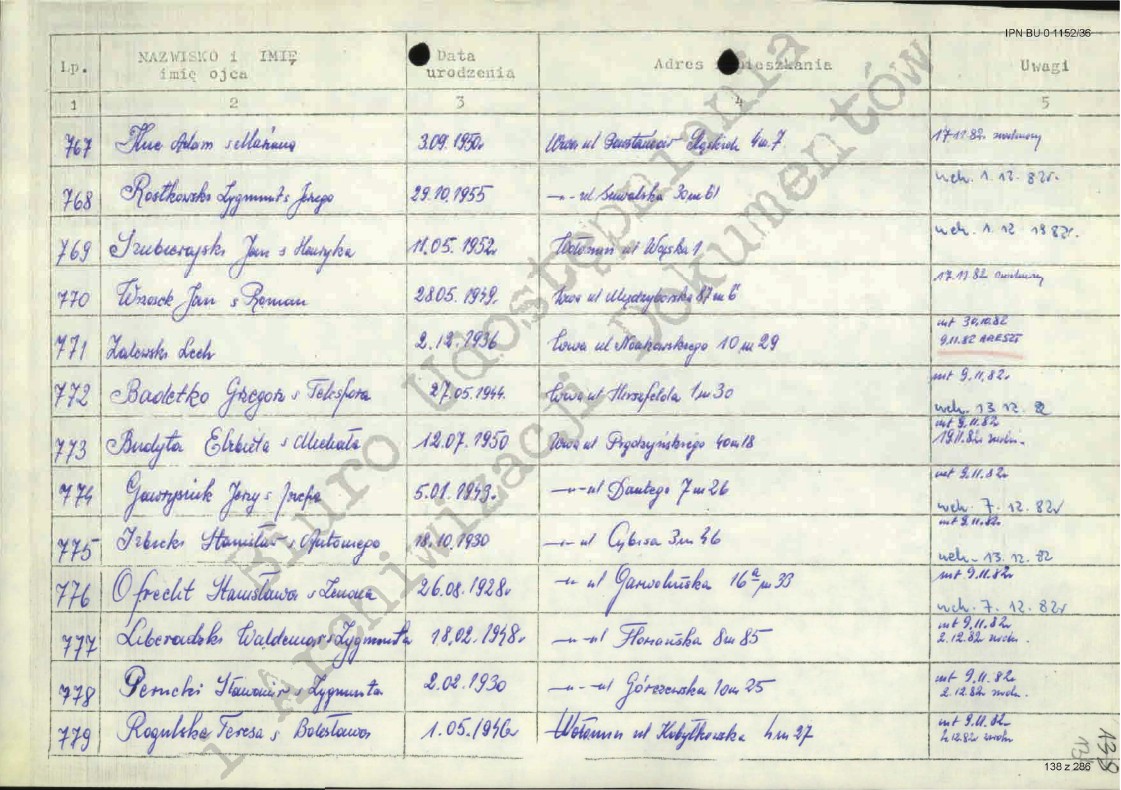 IPN BU 0 1152/36
Lp. NAZWISKO i IMIĘ imię ojca Data urodzenia Adres Uwagi
1 2 3 4 5
767 Adam s 3.09.1950r ul Powstańców Śląskich 4 m 7 17.11.82r zwolniony
768 Rostkowski Zygmunt s Jerzego 29.10.1955 -"- ul Suwalska 30 m 61 uch. 1.12.82r.
769 Szubierajski Jan s Henryka 11.05.1952r Wołomin ul Wąska 1 uch. 1.12 1982r.
770 Wrzosek Jan s Roman 28.05.1949r ul Międzyborska 87 m 6 17.11.82 zwolniony
771 Zalewski Lech 2.12.1936 ul Noakowskiego 10 m 29 int 30.10.82
9.11.82 ARESZT
772 Badetko Grzegorz s Telesfora 27.05.1944. ul Herszfelda 1 m 30 int 9.11.82r
uch. 13.12.82
773 Budyta Elżbieta s Michała 12.07.1950 ul Prądzyńskiego 40 m 18 int 9.11.82r
19.11.82r zwoln.
774 Gawrysiuk Jerzy s Józefa 5.01.1943r -"- ul Dantego 7 m 26 int 9.11.82r
uch. 7.12.82r
775 Izbicki Stanisław s Antoniego 18.10.1930 -"- ul Cybisa 3 m 46 int 9.11.82r
uch. 13.12.82
776 Ofrecht Stanisława s Zenona 26.08.1928r -"- ul Garwolińska 16a m 33 int 9.11.82r
uch. 7.12.82r
777 Liberadzki Waldemar s Zygmunta 18.02.1948r -"- ul Floriańska 8 m 85 int 9.11.82r
2.12.82 zwoln.
778 Perucki Sławomir s Zygmunta 2.02.1930 -"- ul Górczewska 10 m 25 int 9.11.82r
2.12.82r zwoln.
779 Rogulska Teresa s Bolesława 1.05.1946r Wołomin ul Kobyłkowska 4 m 27 int 9.11.82r
2.12.82 zwoln
138 z 286
139
Biuro Udostępniania
i Archiwizacji Dokumentów